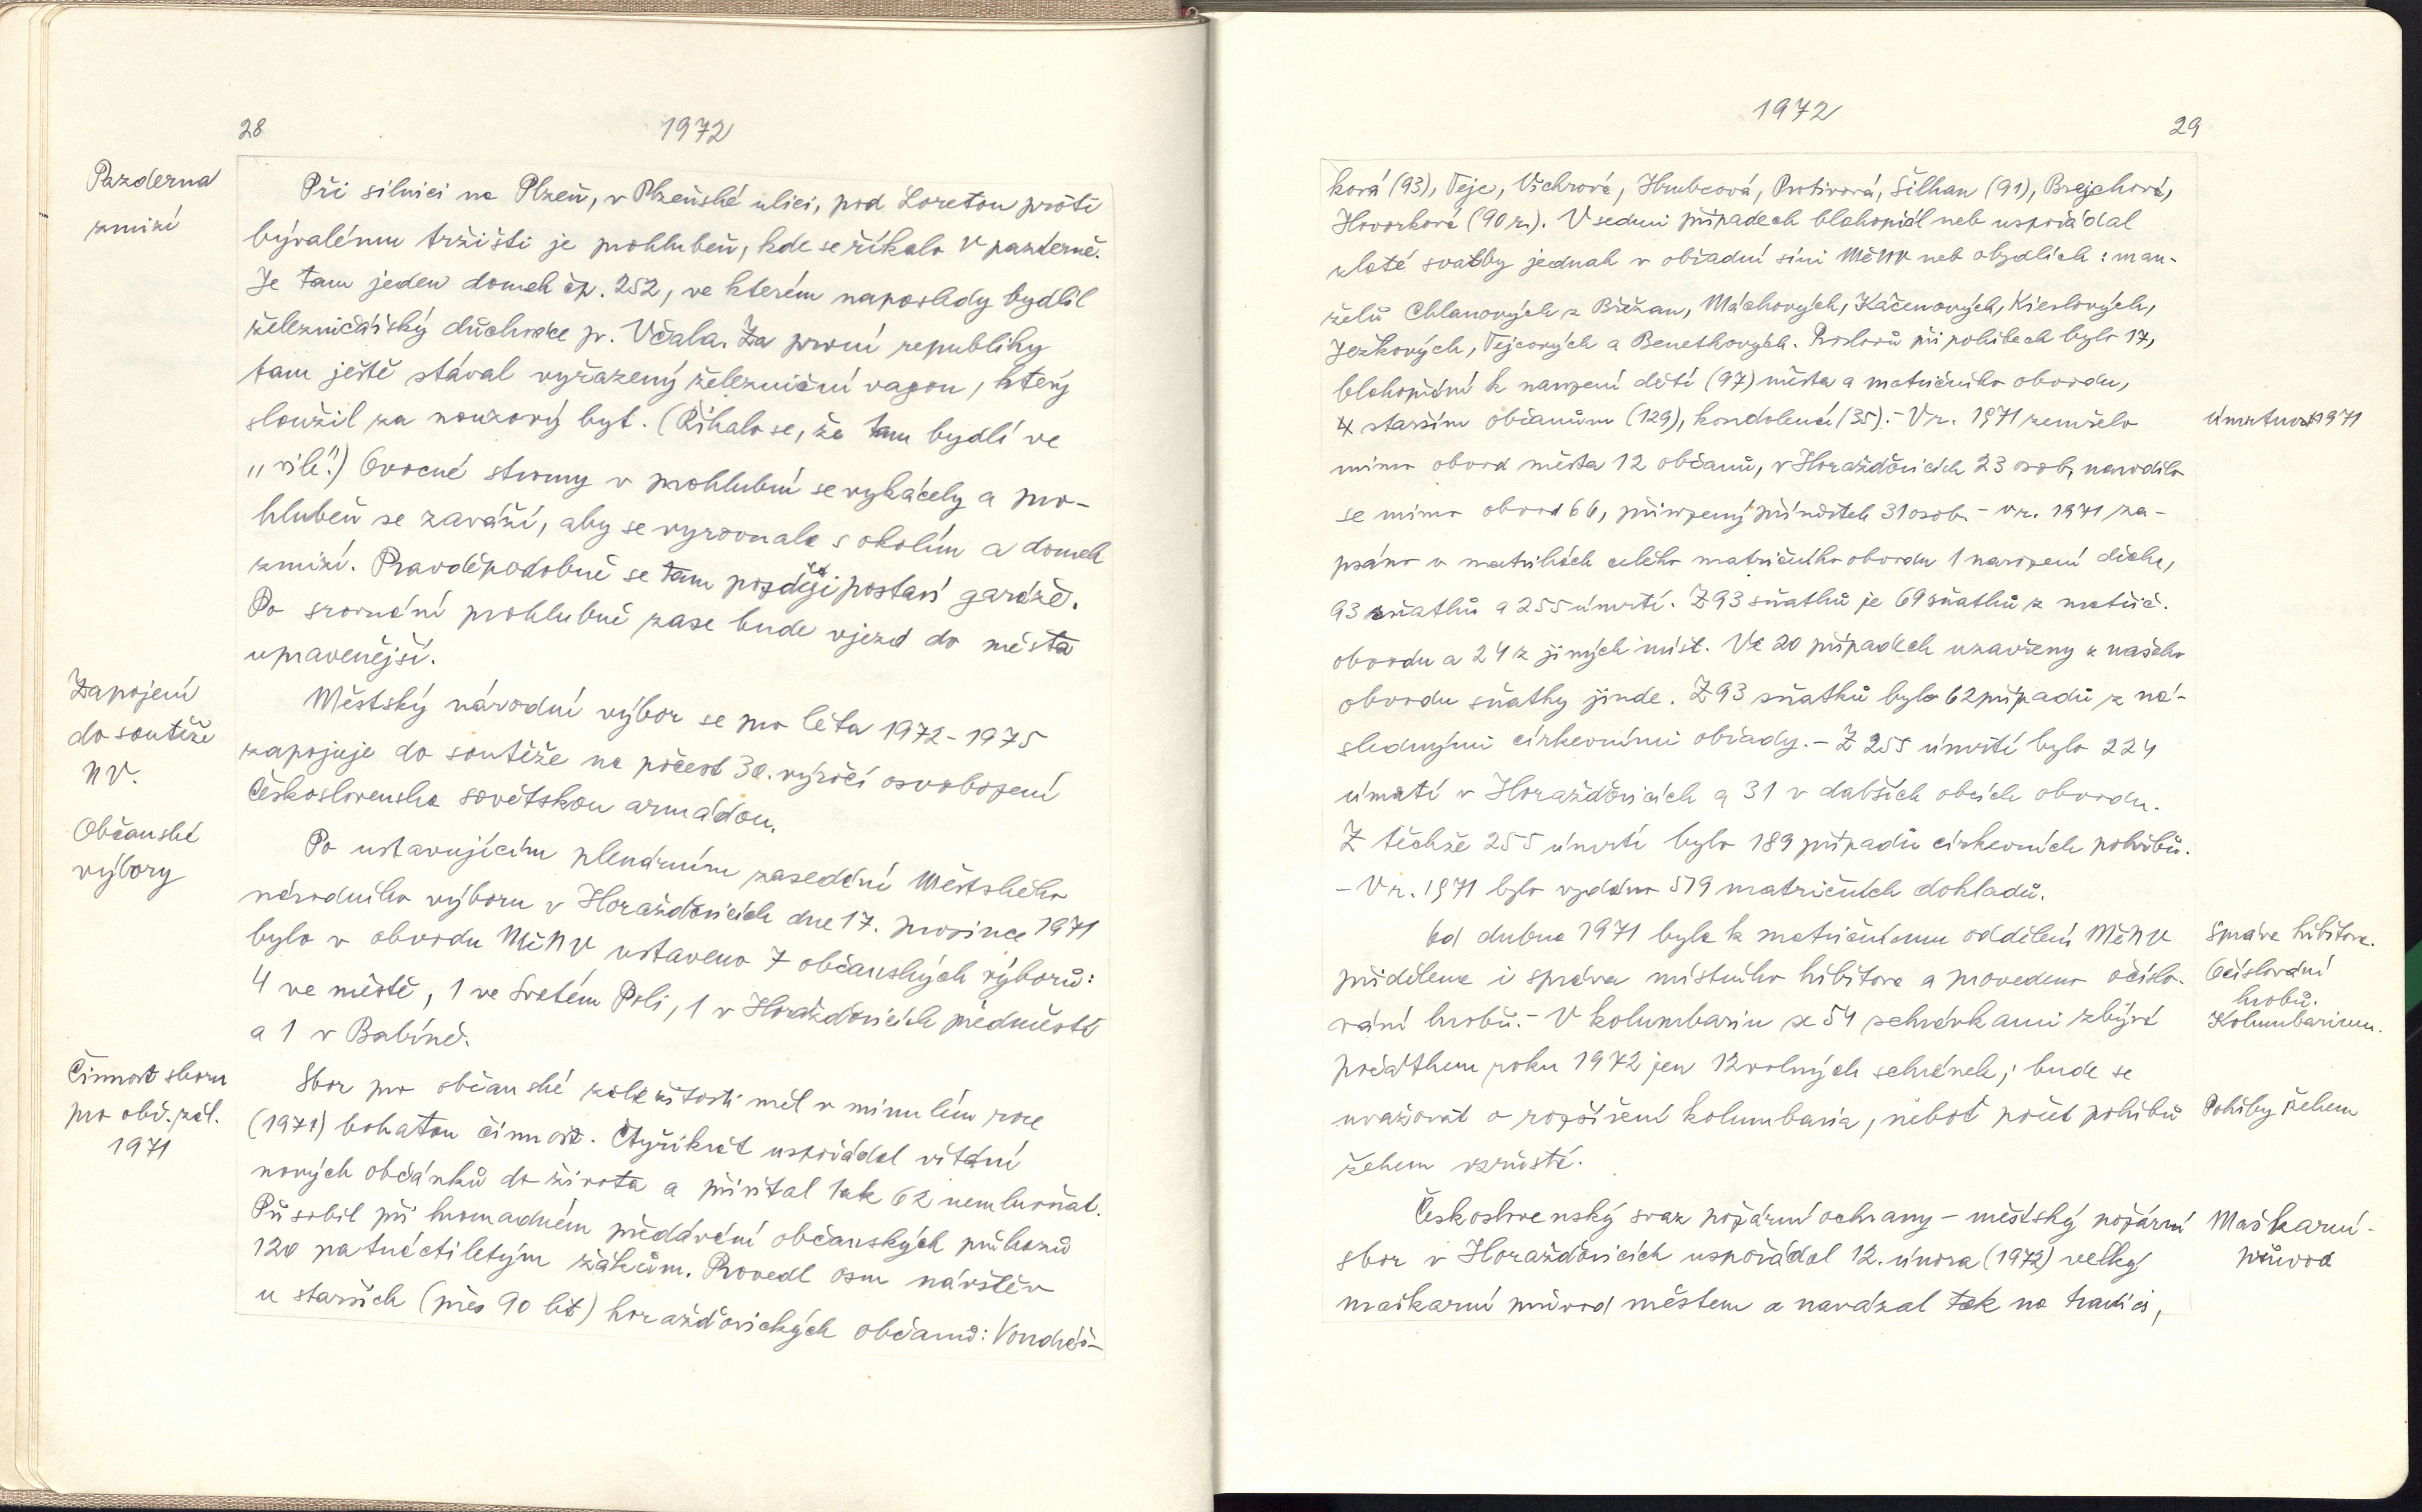 28
1972
Pazderna
zmizí
Při silnici na Plzeň, v Plzeňské ulici, pod Loretou proti
bývalému tržišti je prohlubeň, kde se říkalo V pazderně.
Je tam jeden domek čp. 252, ve kterém naposledy bydlil
železničářský důchodce p. Včala. Za první republiky
tam ještě stával vyřazený železniční vagon, který
sloužil za nouzový byt. (Říkalo se, že tam bydlí ve
„vile".) Ovocné stromy v prohlubni se vykácely a pro-
hlubeň se zaváží, aby se vyrovnala s okolím a domek
zmizí. Pravděpodobně se tam později postaví garáže.
Po srovnání prohlubně zase bude vjezd do města
upravenější.
Zapojení
do soutěže
NV.
Městský národní výbor se pro léta 1972-1975
zapojuje do soutěže na počest 30. výročí osvobození
Československa sovětskou armádou.
Občanské
výbory
Po ustavujícím plenárním zasedání Městského
národního výboru v Horažďovicích dne 17. prosince 1971
bylo v obvodu MěNV ustaveno 7 občanských výborů:
4 ve městě, 1 ve Svatém Poli, 1 v Horažďovicích předměstí
a 1 v Babíně.
Činnost sboru
pro obč. zál.
1971
Sbor pro občanské záležitosti měl v minulém roce
(1971) bohatou činnost. Čtyřikrát uspořádal vítání
nových občánků do života a přivítal tak 62 nemluvňat.
Působil při hromadném předávání občanských průkazů
120 patnáctiletým žákům. Provedl osm návštěv
u starších (přes 90 let) horažďovických občanů: Vondráš-
1972
29
ková (93), Tejc, Vichrová, Hrubcová, Protivová, Šilhan (91), Brejchová,
Hovorková (90 r.). V sedmi případech blahopřál neb uspořádal
zlaté svatby jednak v obřadní síni MěNV neb obydlích: man-
želů Chlanových z Břežan, Máchových, Káčenových, Kieslových,
Jezkových, Tejcových a Benetkových. Proslovů při pohřbech bylo 17,
blahopřání k narození dětí (97) města a matričního obvodu,
k starším občanům (129), kondolencí (35). - V r. 1971 zemřelo
Úmrtnost 1971
mimo obvod města 12 občanů, v Horažďovicích 23 osob, narodilo
se mimo obvod 66, přirozený přírůstek 31 osob. - V r. 1971 za-
psáno v matrikách celého matričního obvodu 1 narození dítěte,
93 sňatků a 255 úmrtí. Z 93 sňatků je 69 sňatků z matrič.
obvodu a 24 z jiných míst. Ve 20 případech uzavřeny z našeho
obvodu sňatky jinde. Z 93 sňatků bylo 62 případů z ná-
slednými církevními obřady. - Z 255 úmrtí bylo 224
úmrtí v Horažďovicích a 31 v dalších obcích obvodu.
Z těchže 255 úmrtí bylo 189 případů církevních pohřbů.
- V r. 1971 bylo vydáno 579 matričních dokladů.
Od dubna 1971 byla k matričnímu oddělení MěNV
Správa hřbitova.
přidělena i správa místního hřbitova a provedeno očíslo-
Očíslování
hrobů.
vání hrobů. - V kolumbariu se 54 schránkami zbývá
Kolumbarium.
počátkem roku 1972 jen 12 volných schránek; bude se
uvažovat o rozšíření kolumbaria, neboť počet pohřbů
Pohřby žehem
žehem vzrůstá.
Československý svaz požární ochrany - městský požární
Maškarní
průvod
sbor v Horažďovicích uspořádal 12. února (1972) velký
maškarní průvod městem a navázal tak na tradici,